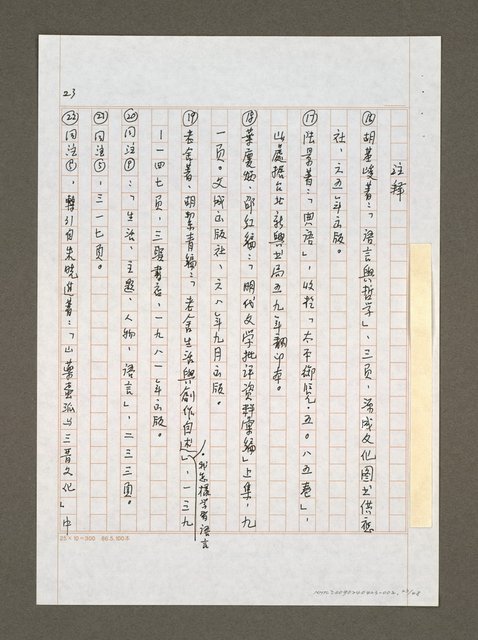 註釋
⑯ 胡基峻著：「語言與哲學」，三頁，萬成文化圖書供應
社，六五年出版。
⑰ 陸景著：「典語」，收於「太平御覽．五○八五卷」，
此處據台北新興書局五九年翻印本。
⑱ 葉慶炳、邵紅編：「明代文學批評資料彙編」上集，九
一頁。文成出版社，六八年九月出版。
⑲ 老舍著，胡絜青編：「老舍生活與創作自述」，一三九
．我怎樣學習語言
－一四七頁，三聯書店，一九八一年出版。
⑳ 同注⑨：「生活、主題、人物、語言」，二三三頁。
㉑ 同注⑤，三一七頁。
㉒ 同注④，轉引自朱曉進著：「山藥蛋派與三晉文化」中
23
25×10=300 86.5.100.本